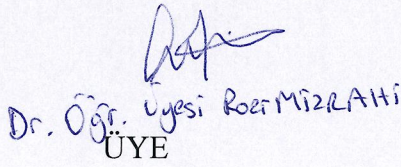 Dr. Öğr. Üyesi Rozi MİZRAHİ
ÜYE